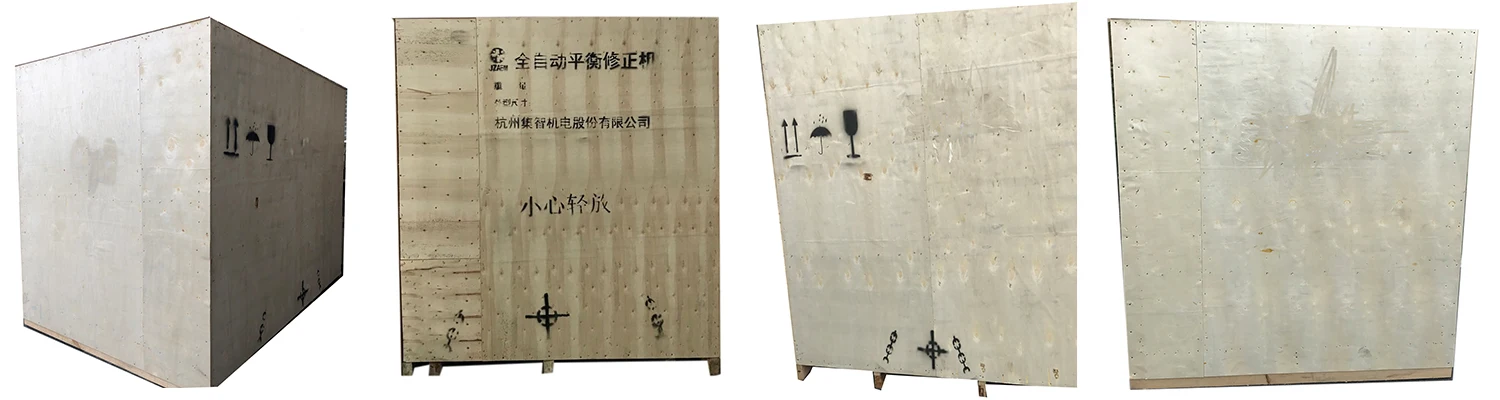 全自动平衡修正机
重 量
外型尺寸
杭州集智机电股份有限公司
小心轻放